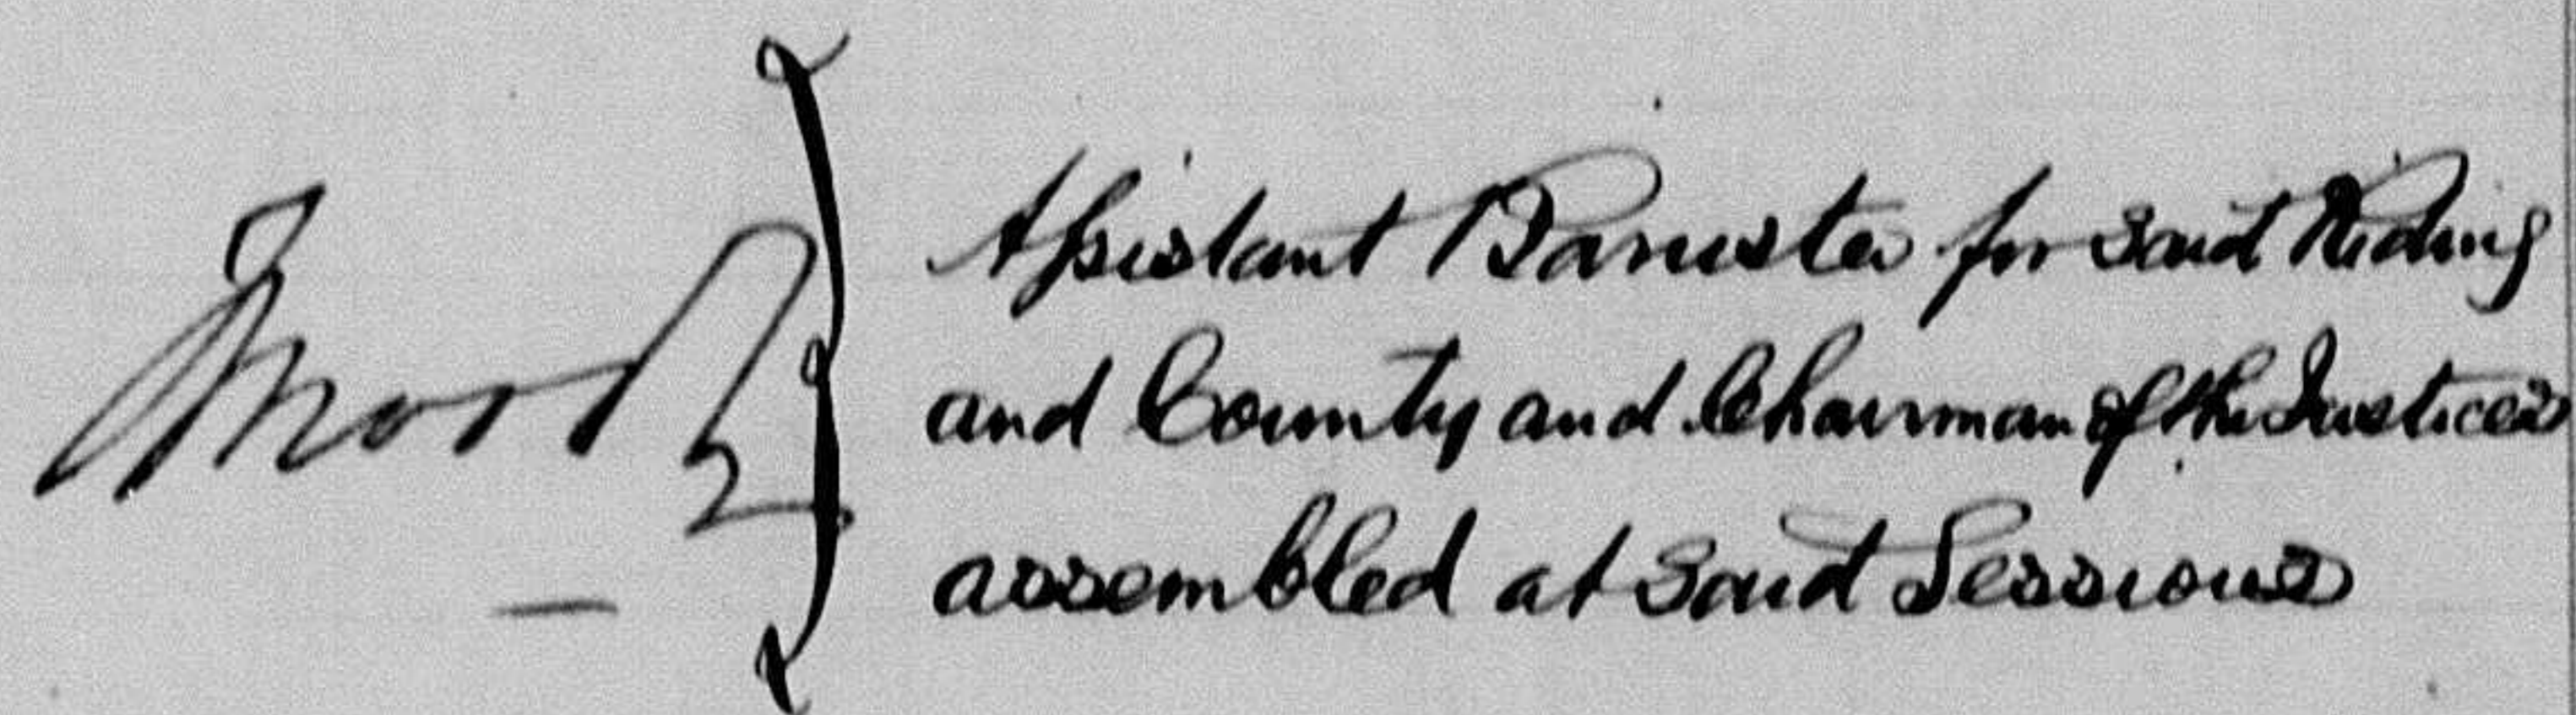 Assistant Barrister for said Riding
and County and Chairman of the Justices
assembled at said Sessions